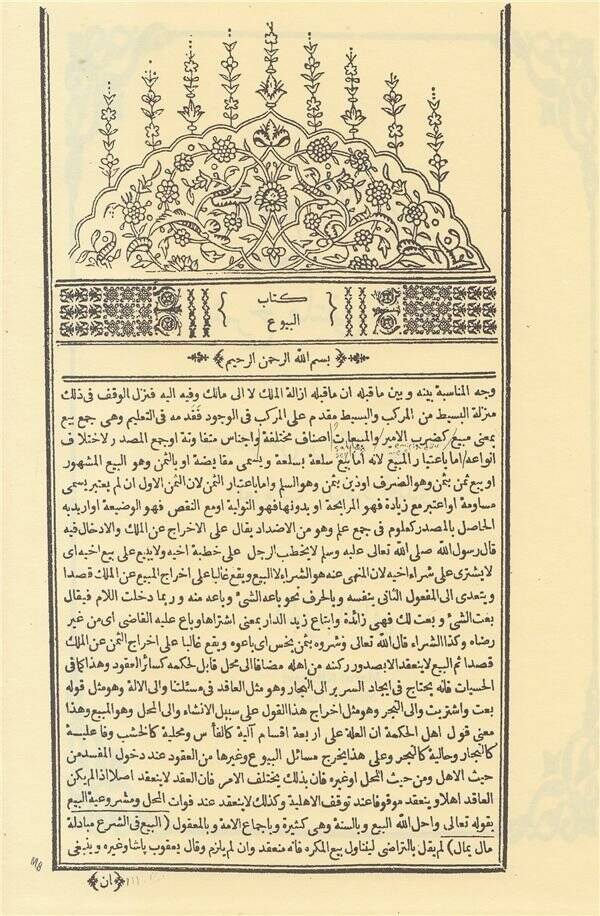 كتاب
البيوع
بسم الله الرحمن الرحيم
وجه المناسبة بينه وبين ماقبله ان ماقبله ازالة الملك لا الى مالك وفيه اليه فنزل الوقف فى ذلك
منزلة البسيط من المركب والبسيط مقدم على المركب فى الوجود فقدمه فى التعليم وهى جمع بيع
بمعنى مبيع كضرب الامير والمبيعات اصناف مختلفة واجناس متفاوتة اوجمع المصدر لاختلاف
انواعه اما باعتبار المبيع لانه اما بيع سلعة بسلعة ويسمى مقايضة او بالثمن وهو البيع المشهور
او بيع ثمن بثمن وهو الصرف اودين بثمن وهو السلم واما باعتبار الثمن لان الثمن الاول ان لم يعتبر يسمى
مساومة اواعتبر مع زيادة فهو المرابحة او بدونها فهو التولية اومع النقص فهو الوضيعة اواريد به
الحاصل بالمصدر كعلوم فى جمع علم وهو من الاضداد يقال على الاخراج عن الملك والادخال فيه
قال رسول الله صلى الله تعالى عليه وسلم لا يخطب الرجل على خطبة اخيه ولا يبيع على بيع اخيه اى
لا يشترى على شراء اخيه لان المنهى عنه هو الشراء لا البيع ويقع غالبا على اخراج المبيع عن الملك قصدا
ويتعدى الى المفعول الثانى بنفسه وبالحرف نحو باعه الشئ وباعه منه وربما دخلت اللام فيقال
بعت الشئ وبعت لك فهى زائدة وابتاع زيد الدار بمعنى اشتراها وباع عليه القاضى اى من غير
رضاه وكذا الشراء قال الله تعالى وشروه بثمن بخس اى باعوه ويقع غالبا على اخراج الثمن عن الملك
قصدا ثم البيع لا ينعقد الا بصدور ركنه من اهله مضافا الى محل قابل لحكمه كسائر العقود وهذا كما فى
الحسيات فانه يحتاج فى ايجاد السرير الى النجار وهو مثل العاقد فى مسئلتنا والى الالة وهو مثل قوله
بعت واشتريت والى النجر وهو مثل اخراج هذا القول على سبيل الانشاء والى المحل وهو المبيع وهذا
معنى قول اهل الحكمة ان العلة على اربعة اقسام آلية كالفأس ومحلية كالخشب وفاعلية
كالنجار وحالية كالنجر وعلى هذا يخرج مسائل البيوع وغيرها من العقود عند دخول المفسد من
حيث الاهل ومن حيث المحل اوغيره فان بذلك يختلف الامر فان العقد لا ينعقد اصلا اذا لم يكن
العاقد اهلا وينعقد موقوفا عند توقف الاهلية وكذلك لا ينعقد عند فوات المحل ومشروعية البيع
بقوله تعالى واحل الله البيع وبالسنة وهى كثيرة وباجماع الامة وبالمعقول ( البيع فى الشرع مبادلة
مال بمال ) لم يقل بالتراضى ليتناول بيع المكره فانه منعقد وان لم يلزم وقال يعقوب پاشا وغيره وينبغى
ان